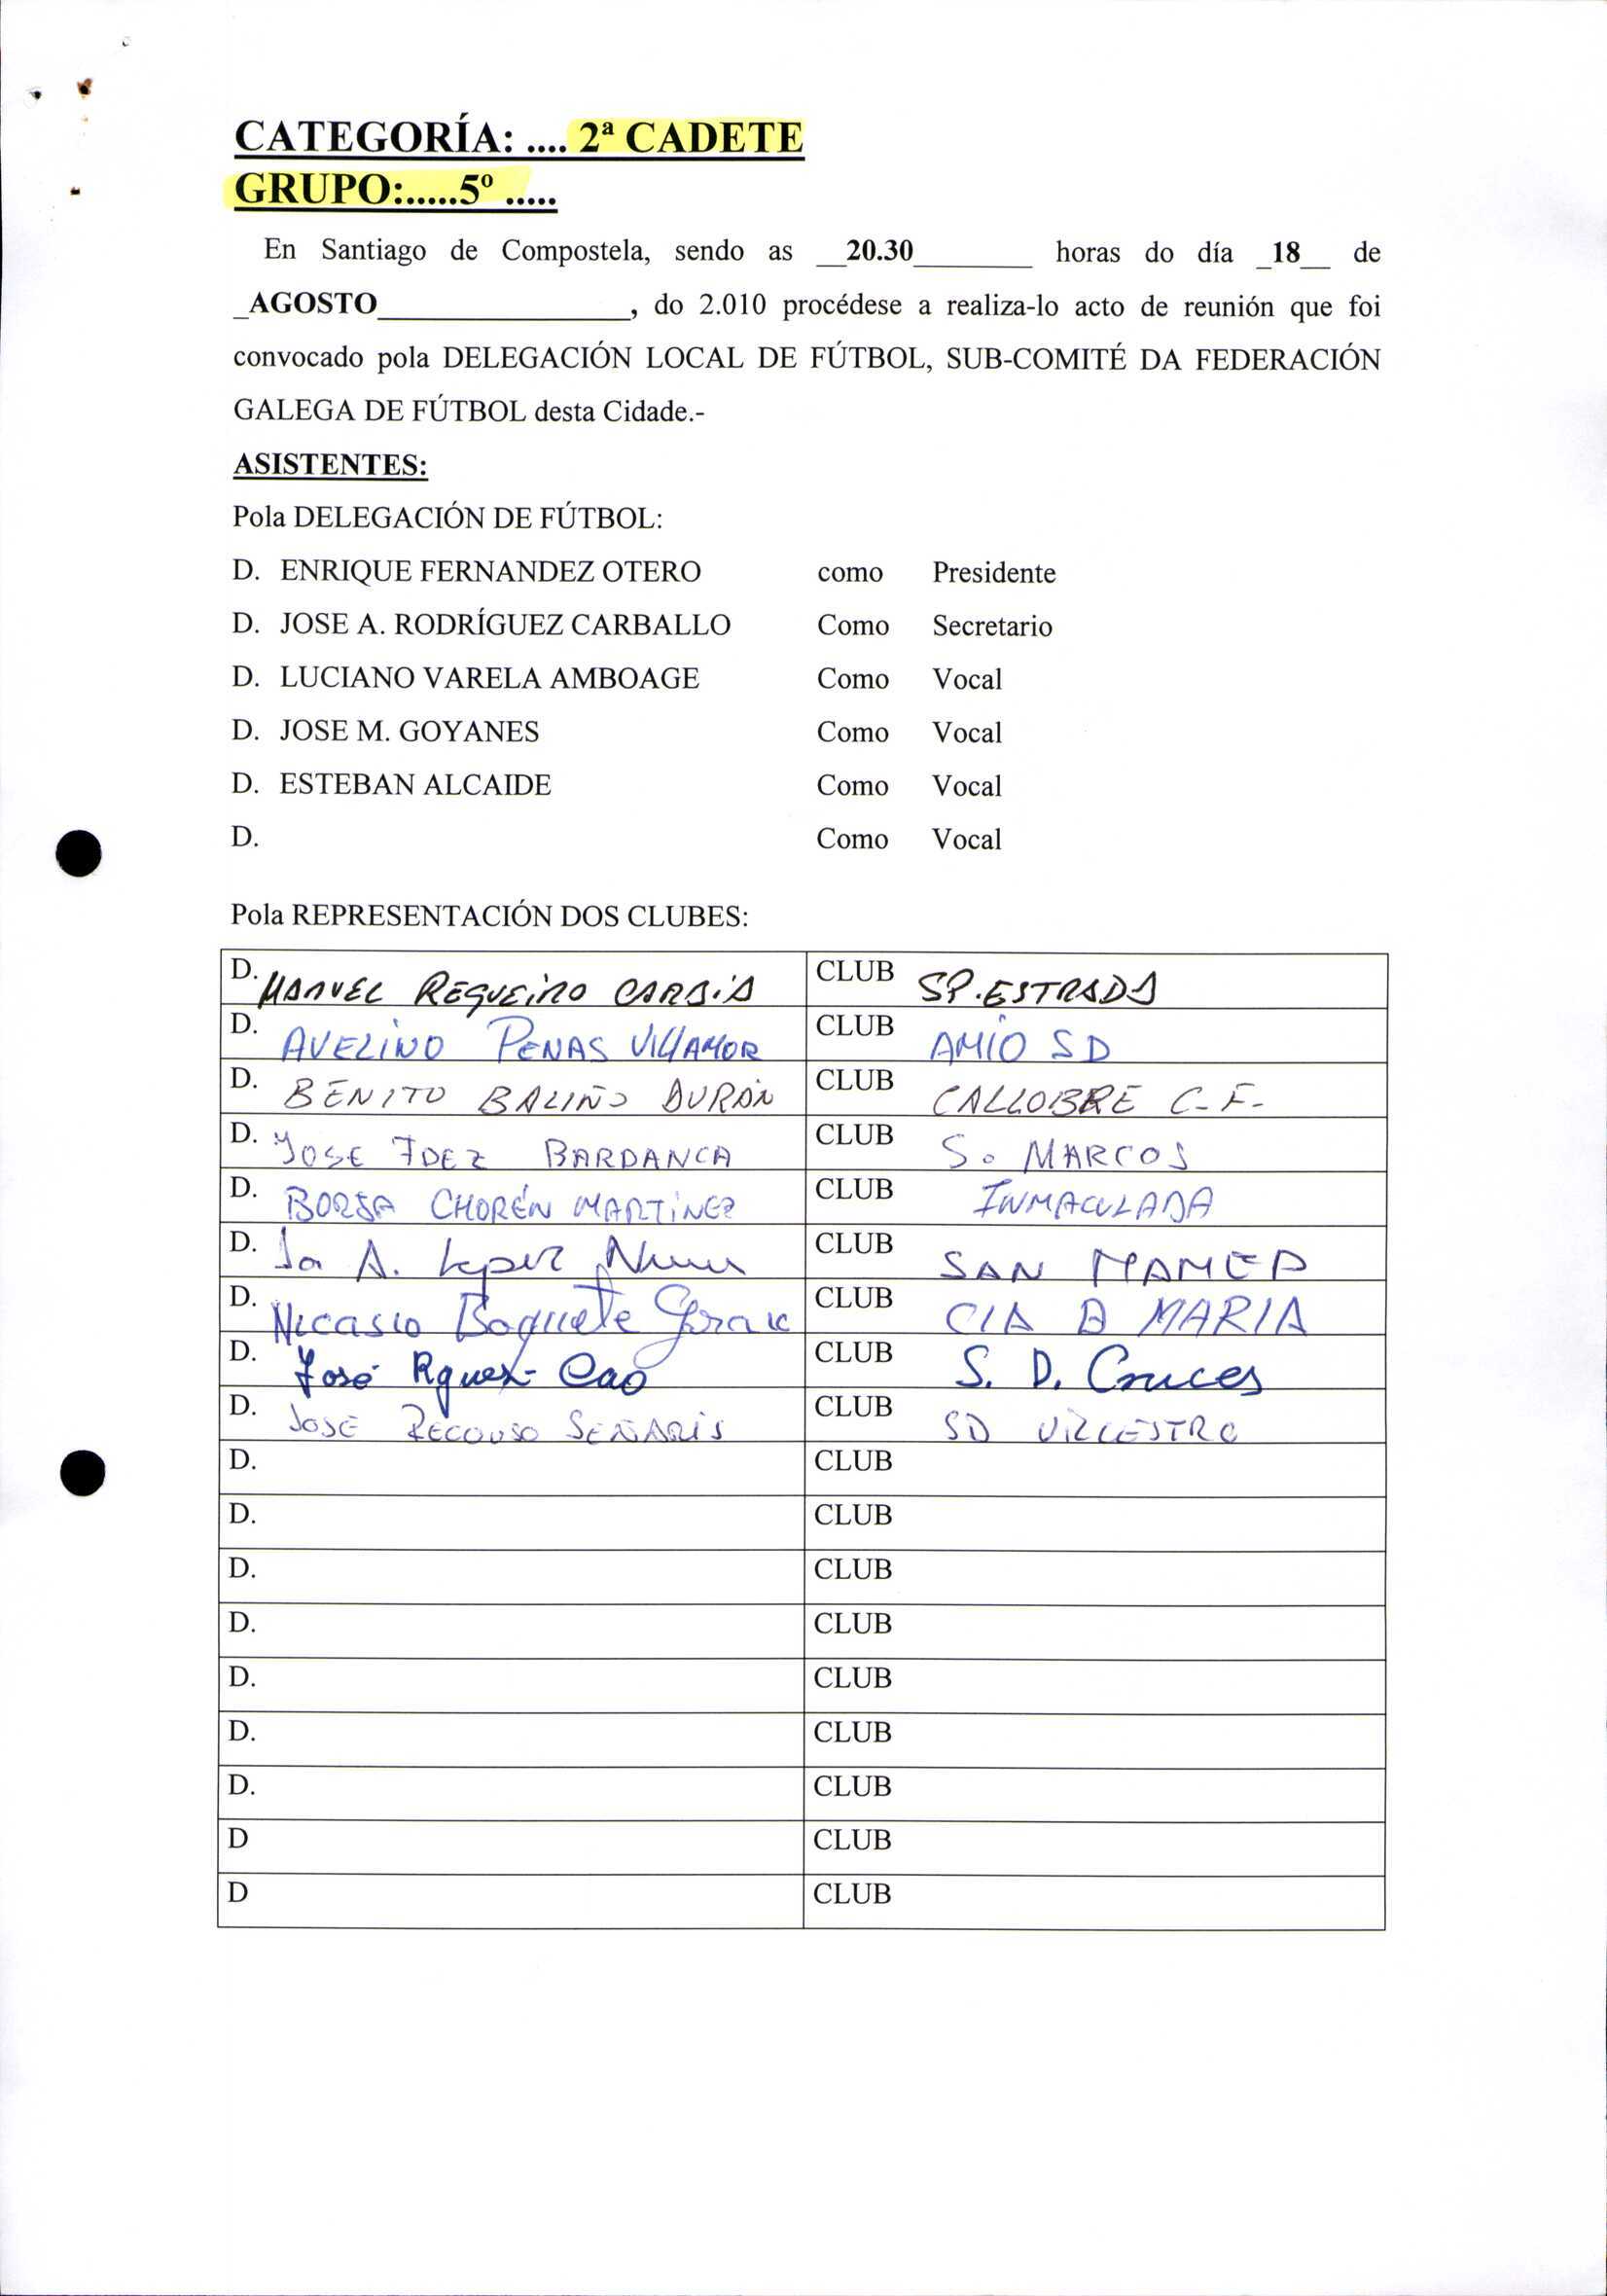 CATEGORÍA: .... 2ª CADETE
GRUPO:.....5º .....
En Santiago de Compostela, sendo as __20.30________ horas do día _18__ de
_AGOSTO_________________, do 2.010 procédese a realiza-lo acto de reunión que foi
convocado pola DELEGACIÓN LOCAL DE FÚTBOL, SUB-COMITÉ DA FEDERACIÓN
GALEGA DE FÚTBOL desta Cidade.-
ASISTENTES:
Pola DELEGACIÓN DE FÚTBOL:
D. ENRIQUE FERNANDEZ OTERO como Presidente
D. JOSE A. RODRÍGUEZ CARBALLO Como Secretario
D. LUCIANO VARELA AMBOAGE Como Vocal
D. JOSE M. GOYANES Como Vocal
D. ESTEBAN ALCAIDE Como Vocal
D. Como Vocal
Pola REPRESENTACIÓN DOS CLUBES:
D. MANUEL REQUEIRO CARBIA CLUB SP. ESTRADA
D. AVELINO PENAS VILLAMOR CLUB AMIO SD
D. BENITO BALIÑO DURÁN CLUB CALLOBRE C.F.
D. JOSE FDEZ BARDANCA CLUB S. MARCOS
D. BORJA CHORÉN MARTÍNEZ CLUB INMACULADA
D. A. Lopez CLUB SAN MAMED
D. Nicasio Boquete CLUB CIA D MARIA
D. José Rguez Cao CLUB S. D. Cruces
D. JOSE RECOUSO SEÑARIS CLUB SD VILLESTRO
D. CLUB
D. CLUB
D. CLUB
D. CLUB
D. CLUB
D. CLUB
D. CLUB
D CLUB
D CLUB